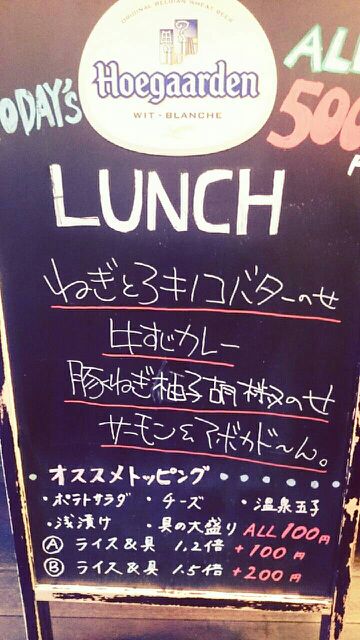 ORIGINAL BELGIAN WHEAT BEER
Hoegaarden
WIT - BLANCHE
TODAY's
ALL
500
LUNCH
ねぎとろキノコバターのせ
牛すじカレー
豚ねぎ柚子胡椒のせ
サーモン&アボカド〜ん。
オススメトッピング
・ポテトサラダ ・チーズ ・温泉玉子
・浅漬け ・具の大盛り ALL 100円
Ⓐ ライス&具 1.2倍 +100円
Ⓑ ライス&具 1.5倍 +200円